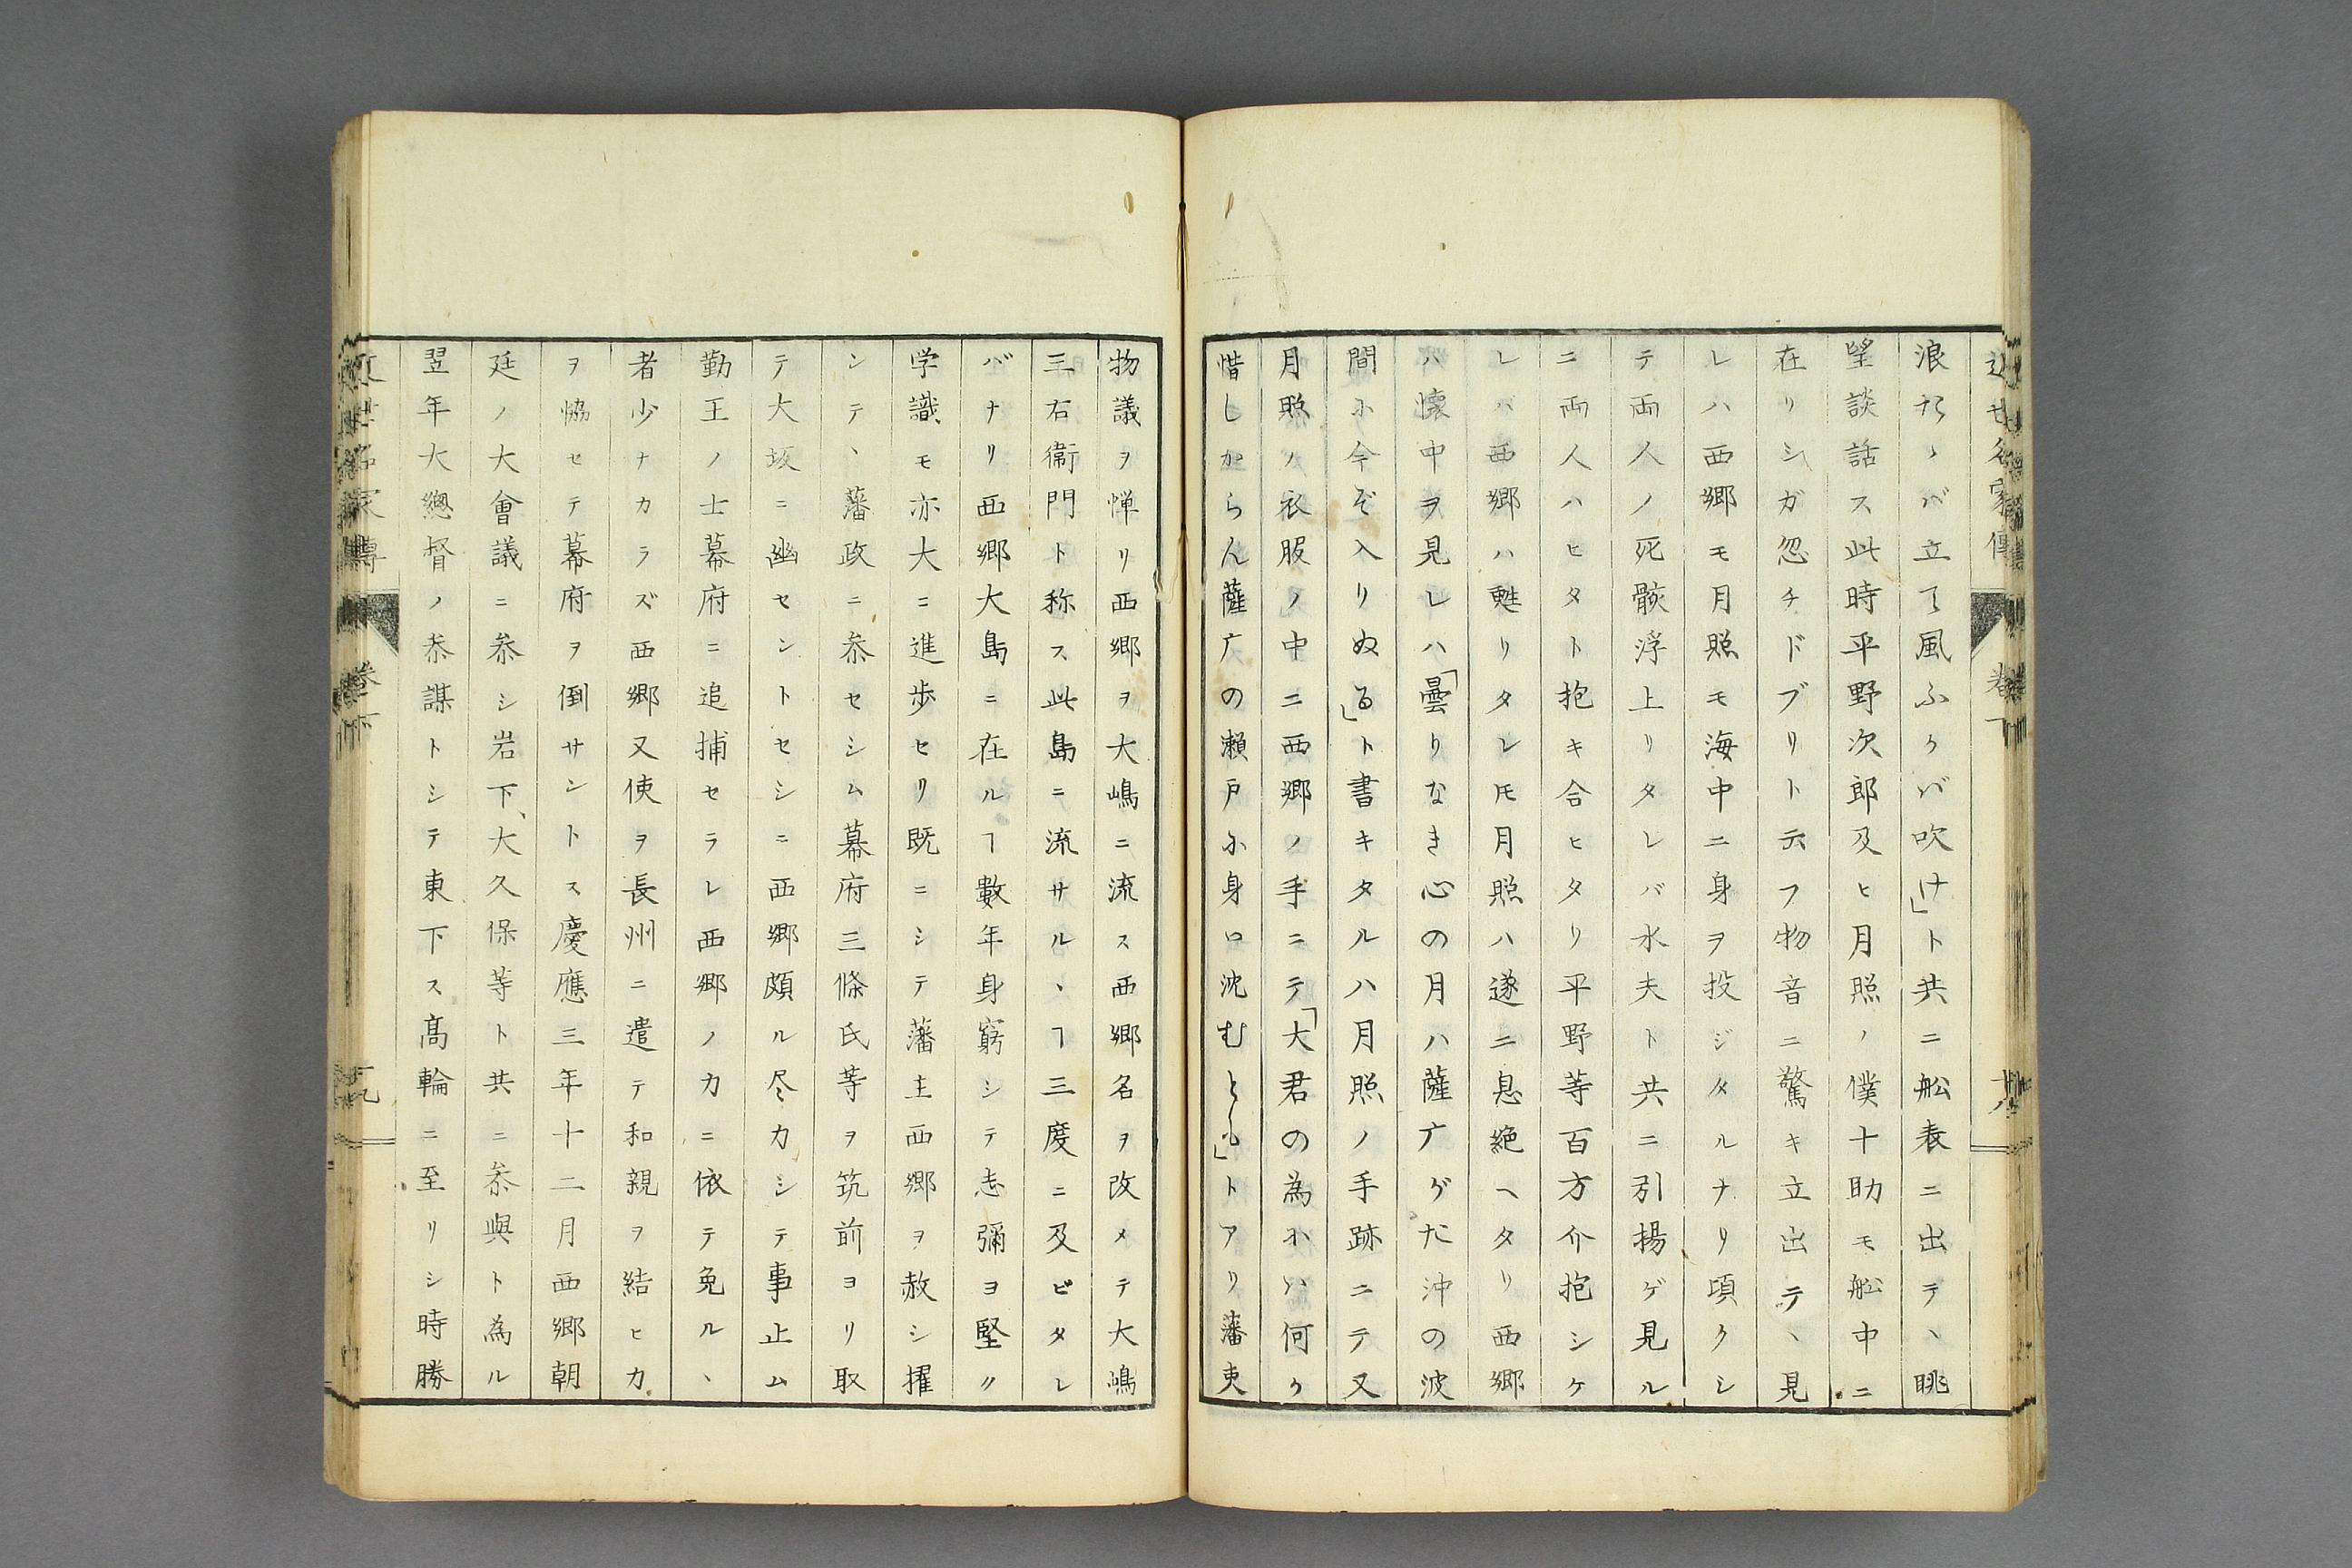 浪たゝバ立て風ふくバ吹け」ト共ニ舩表ニ出テ、眺
望談話ス此時平野次郎及ヒ月照ノ僕十助モ舩中ニ
在リシガ忽チドブリト云フ物音ニ驚キ立出テ、見
レハ西郷モ月照モ海中ニ身ヲ投ジタルナリ頃クシ
テ両人ノ死骸浮上リタレバ水夫ト共ニ引揚ゲ見ル
ニ両人ハヒタト抱キ合ヒタリ平野等百方介抱シケ
レバ西郷ハ甦リタレ𪜈月照ハ遂ニ息絶ヘタリ西郷
ハ懐中ヲ見レハ「曇りなき心の月ハ薩广がた沖の波
間に今ぞ入りぬる」ト書キタルハ月照ノ手跡ニテ又
月照ノ衣服ノ中ニ西郷ノ手ニテ「大君の為にハ何か
惜しからん薩广の瀬戸に身ロ沈むとも」トアリ藩吏
物議ヲ惮リ西郷ヲ大嶋ニ流ス西郷名ヲ改メテ大嶋
三右衞門ト称ス此島ニ流サル、ヿ三度ニ及ビタレ
バナリ西郷大島ニ在ルヿ數年身窮シテ志彌ヨ堅〃
学識モ亦大ニ進歩セリ既ニシテ藩主西郷ヲ赦シ擢
シテ、藩政ニ叅セシム幕府三條氏等ヲ筑前ヨリ取
テ大坂ニ幽セントセシニ西郷頗ル尽力シテ事止ム
勤王ノ士幕府ニ追捕セラレ西郷ノ力ニ依テ免ル、
者少ナカラズ西郷又使ヲ長州ニ遣テ和親ヲ結ヒカ
ヲ恊セテ幕府ヲ倒サントス慶應三年十二月西郷朝
廷ノ大會議ニ叅シ岩下、大久保等ト共ニ叅與ト為ル
翌年大總督ノ叅謀トシテ東下ス髙輪ニ至リシ時勝